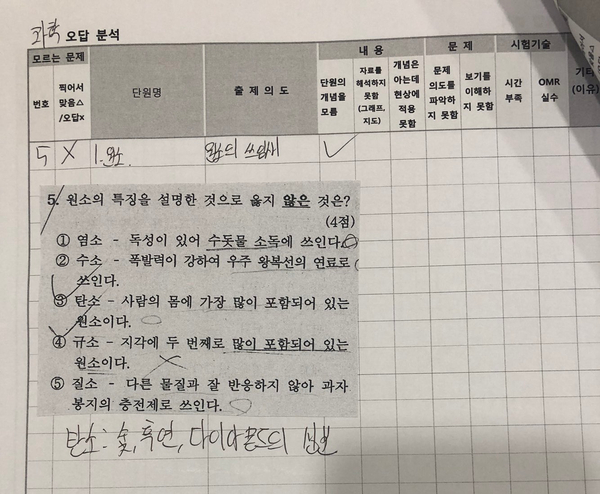 과학 오답 분석
모르는 문제 내 용 문 제 시험기술
번호 찍어서 맞음△ /오답x 단원명 출 제 의 도 단원의 개념을 모름 자료를 해석하지 못함 (그래프, 지도) 개념은 아는데 현상에 적용 못함 문제 의도를 파악하지 못함 보기를 이해하지 못함 시간 부족 OMR 실수 기타 (이유)
5 X 1. 원소 원소의 쓰임새 ✓
5. 원소의 특징을 설명한 것으로 옳지 않은 것은?
(4점)
① 염소 - 독성이 있어 수돗물 소독에 쓰인다.
② 수소 - 폭발력이 강하여 우주 왕복선의 연료로
쓰인다.
③ 탄소 - 사람의 몸에 가장 많이 포함되어 있는
원소이다.
④ 규소 - 지각에 두 번째로 많이 포함되어 있는
원소이다.
⑤ 질소 - 다른 물질과 잘 반응하지 않아 과자
봉지의 충전제로 쓰인다.
탄소: 숯, 흑연, 다이아몬드의 성분